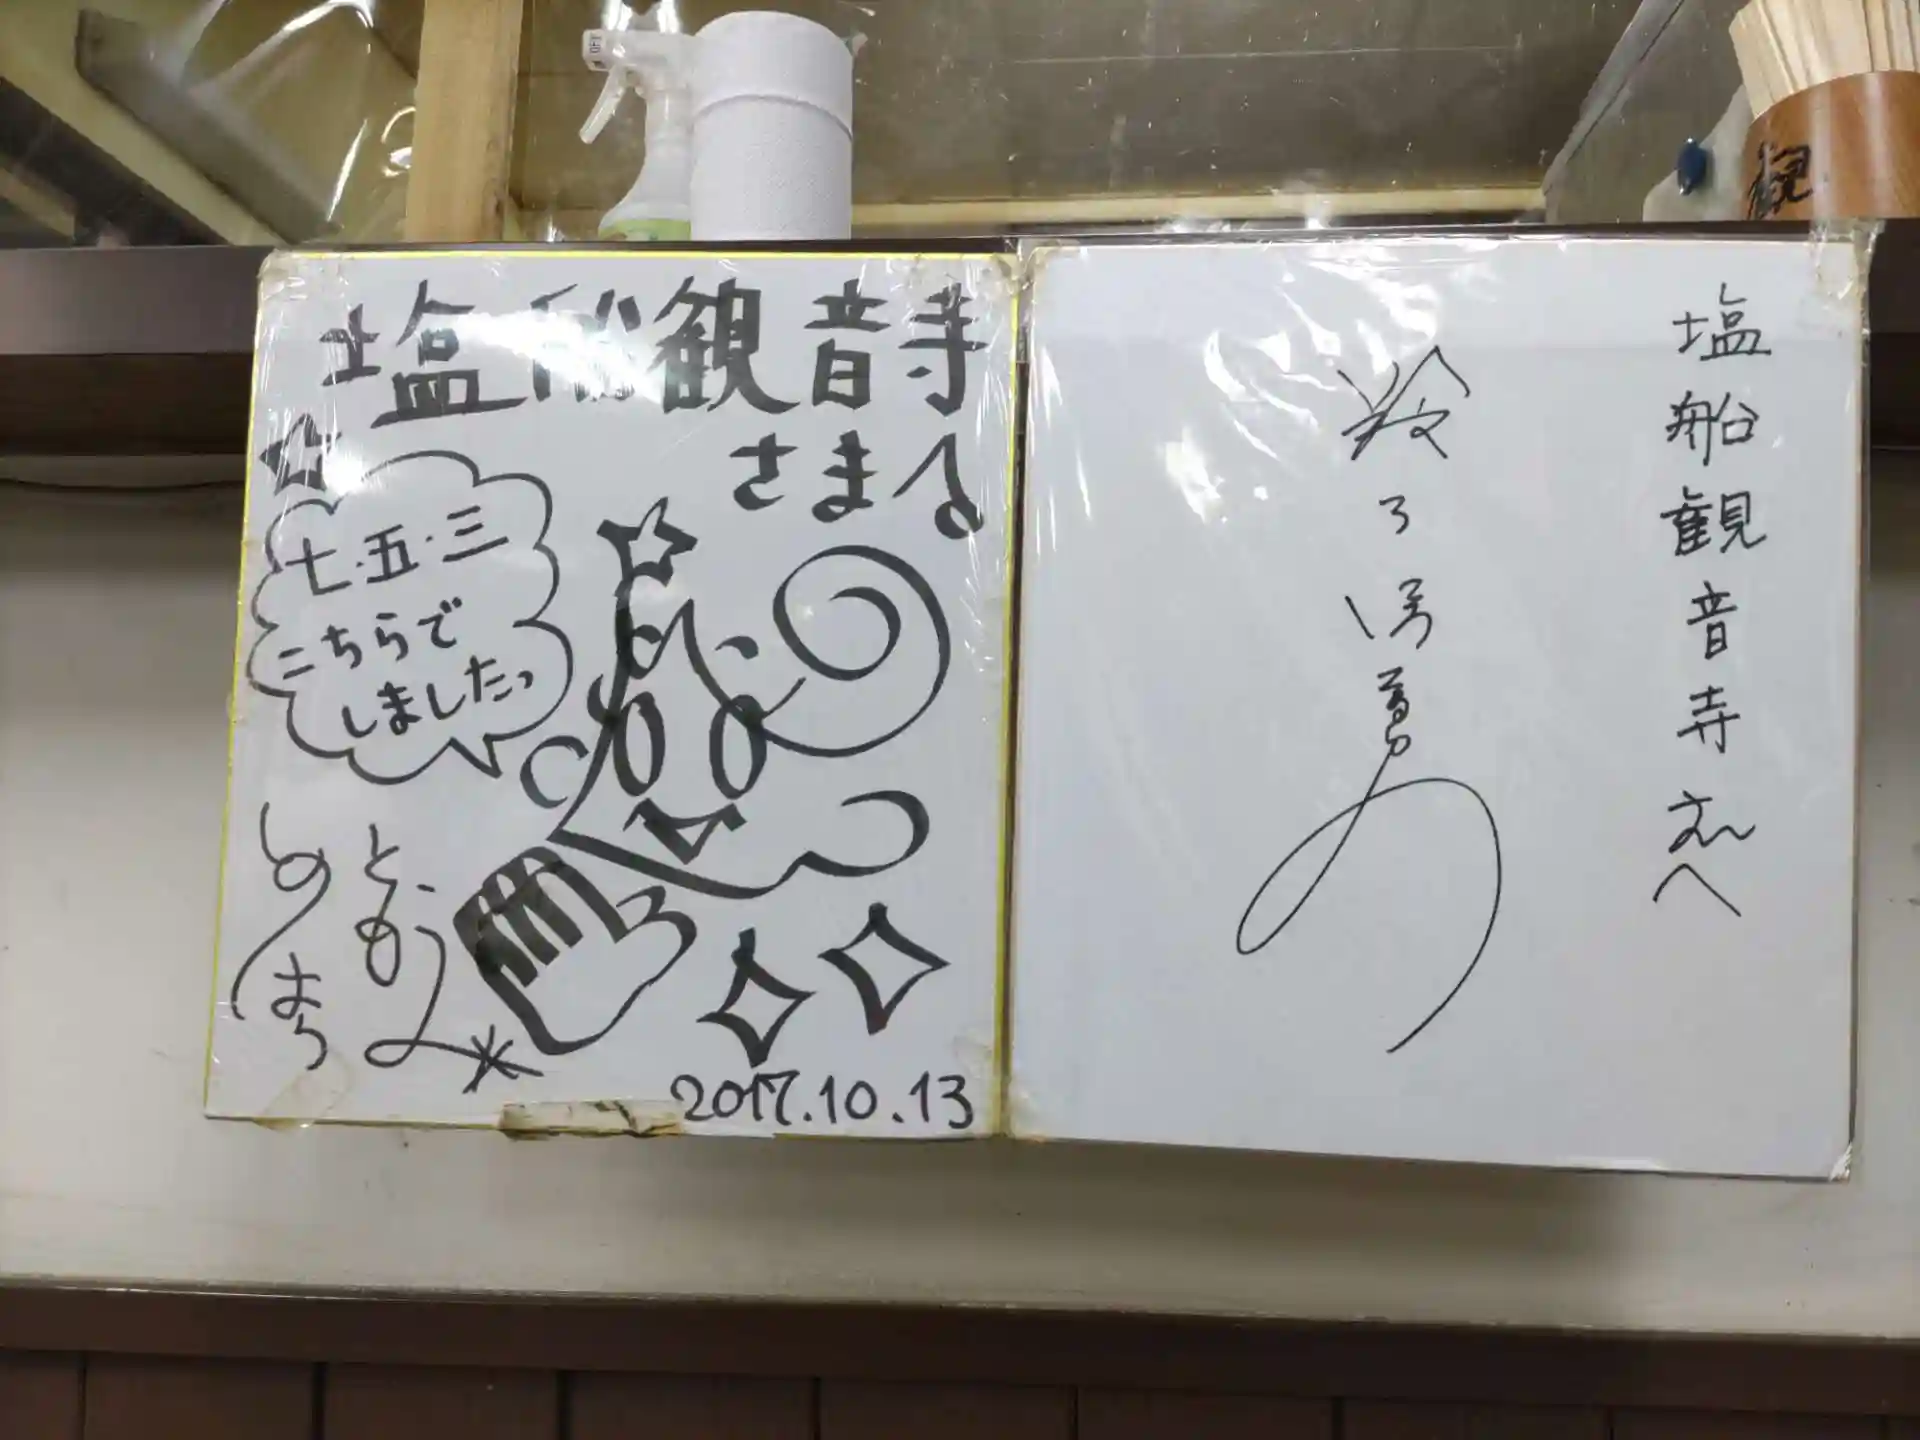 塩船観音寺
さま♪
七・五・三
こちらで
しましたっ
しのはら
ともえ
2017.10.13
塩船観音寺さんへ
OFF